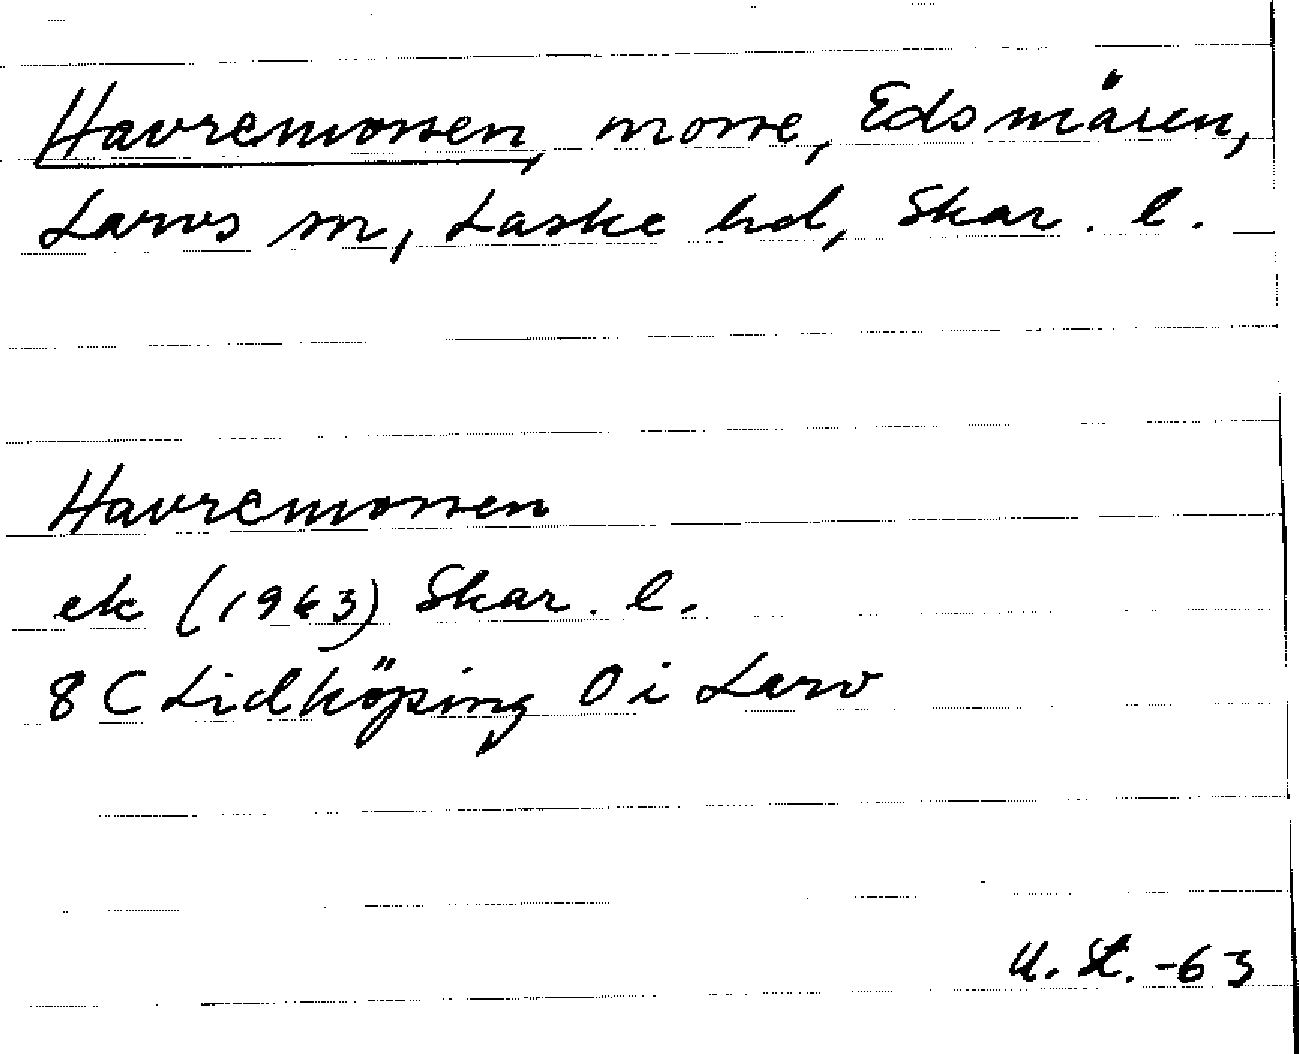 Havremossen, mosse, Edsmären,
Larvs sn, Laske hd, Skar. l.
Havremossen
ek (1963) Skar. l.
8 C Lidköping O i Larv
U. St. -63